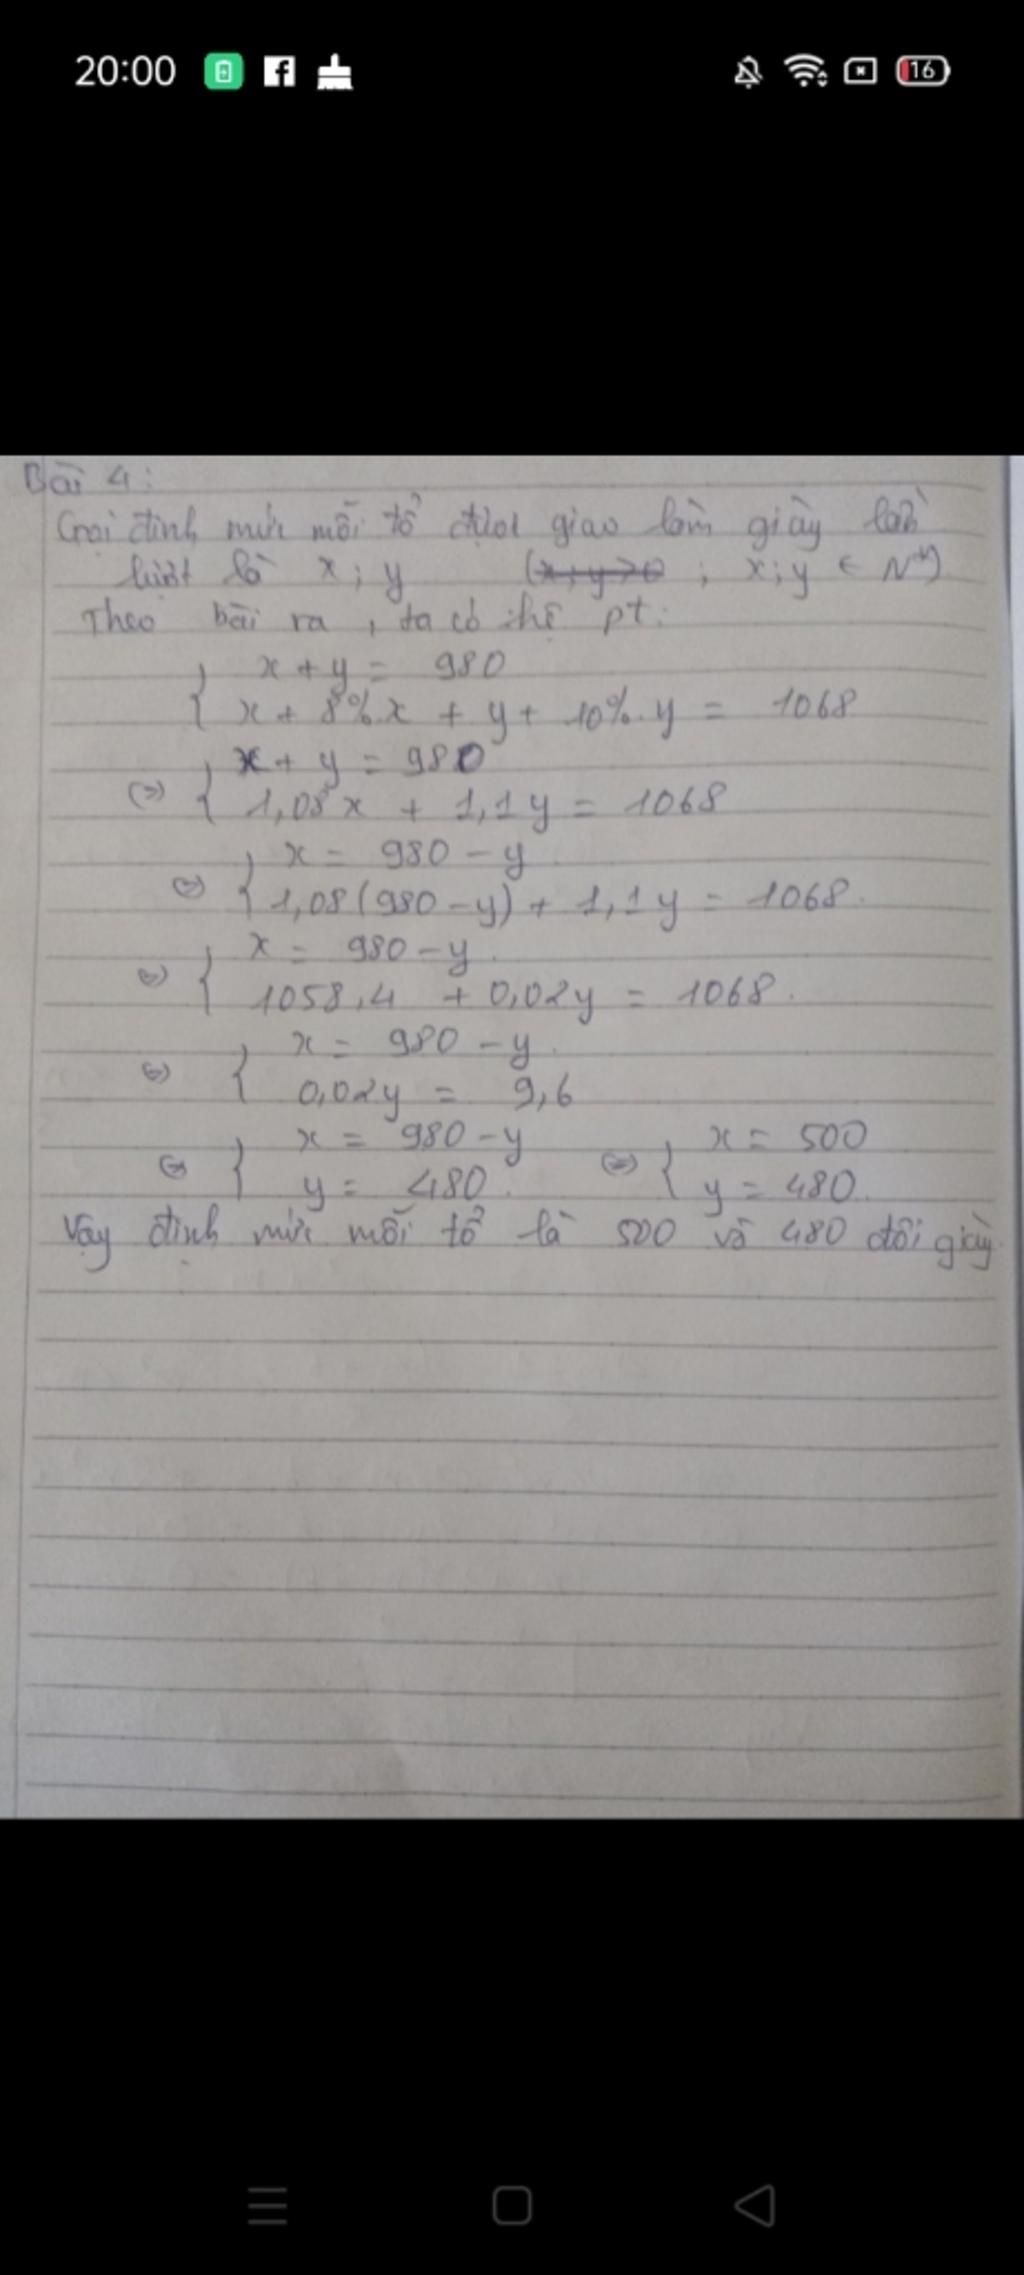 20:00
16
Bài 4:
Gọi định mức mỗi tổ được giao làm giày lần
lượt là x; y (x; y > 0 ; x; y ∈ N*)
Theo bài ra, ta có hệ pt:
x + y = 980
x + 8%.x + y + 10%.y = 1068
x + y = 980
(=) 1,08x + 1,1y = 1068
x = 980 - y
(=) 1,08(980 - y) + 1,1y = 1068.
x = 980 - y.
(=) 1058,4 + 0,02y = 1068.
x = 980 - y.
(=) 0,02y = 9,6
x = 980 - y (=) x = 500
(=) y = 480. y = 480.
Vậy định mức mỗi tổ là 500 và 480 đôi giày.